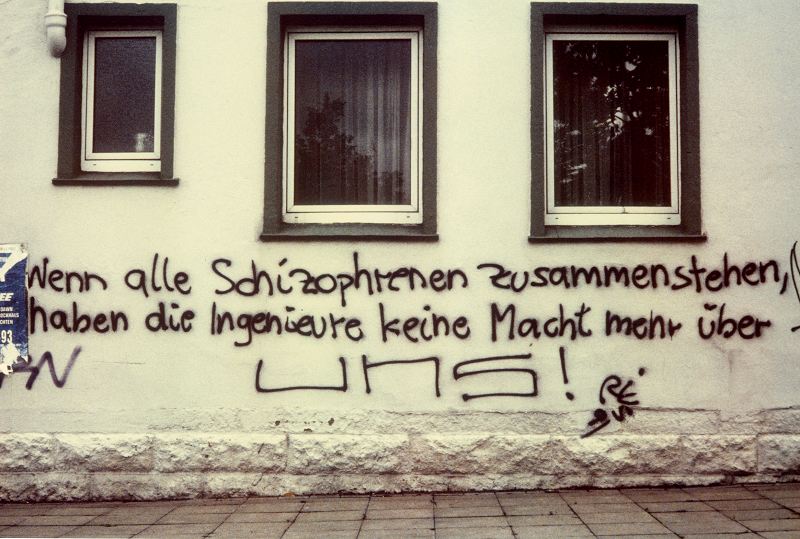 Wenn alle Schizophrenen zusammenstehen,
haben die Ingenieure keine Macht mehr über
uns!
EE
93